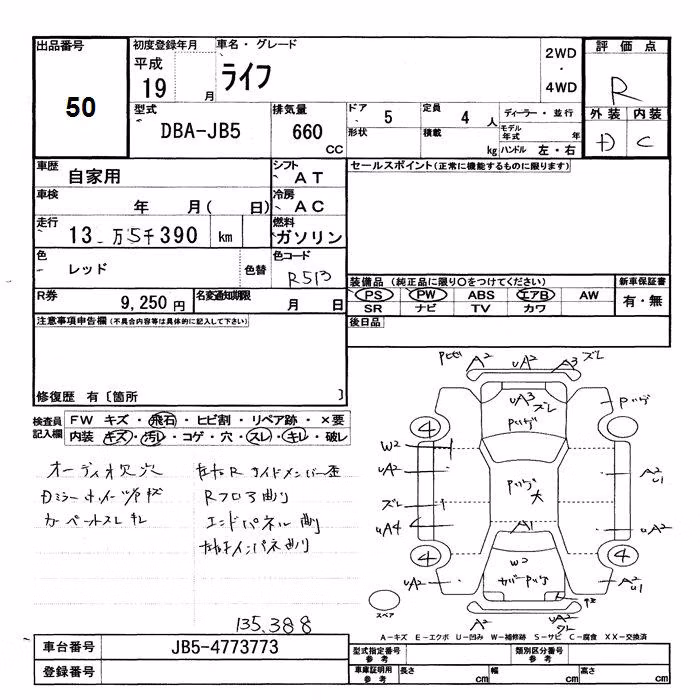 出品番号 初度登録年月 車名・グレード 2WD ・ 4WD 評価点
50 平成 19 月 ライフ R
外装 内装
D C
型式 DBA-JB5 排気量 660 CC ドア 5 定員 4 人 ディーラー・並行
形状 積載 kg モデル年式 年
ハンドル 左・右
車歴 自家用 シフト AT セールスポイント(正常に機能するものに限ります)
車検 年 月( 日) 冷房 AC
走行 13 万5千390 km 燃料 ガソリン
色 レッド 色替 色コード R513
装備品(純正品に限り○をつけてください) 新車保証書
R券 9,250円 名変通知期限 月 日 PS PW ABS エアB AW 有・無
SR ナビ TV カワ
注意事項申告欄(不具合内容等は具体的に記入して下さい) 後日品
修復歴 有〔箇所 〕
検査員記入欄 FW キズ・飛石・ヒビ割・リペア跡・×要
内装 キズ・汚レ・コゲ・穴・スレ・キレ・破レ
オーディオ欠穴
カーペートスレ キレ
Rフロア曲り
エンドパネル曲り
135,388
A2 uA2 A3 ズレ
uA3 ズレ
4
W2
uA2
ズレ
uA4
4
uA2
大
A1
W2
A2 u1
uA2
4
A2 u1
A2
uA2
スペア
A-キズ E-エクボ U-凹み W-補修跡 S-サビ C-腐食 XX-交換済
車台番号 JB5-4773773 型式指定番号 参考 類別区分番号 参考
登録番号 車庫証明用 参考 長さ cm 幅 cm 高さ cm